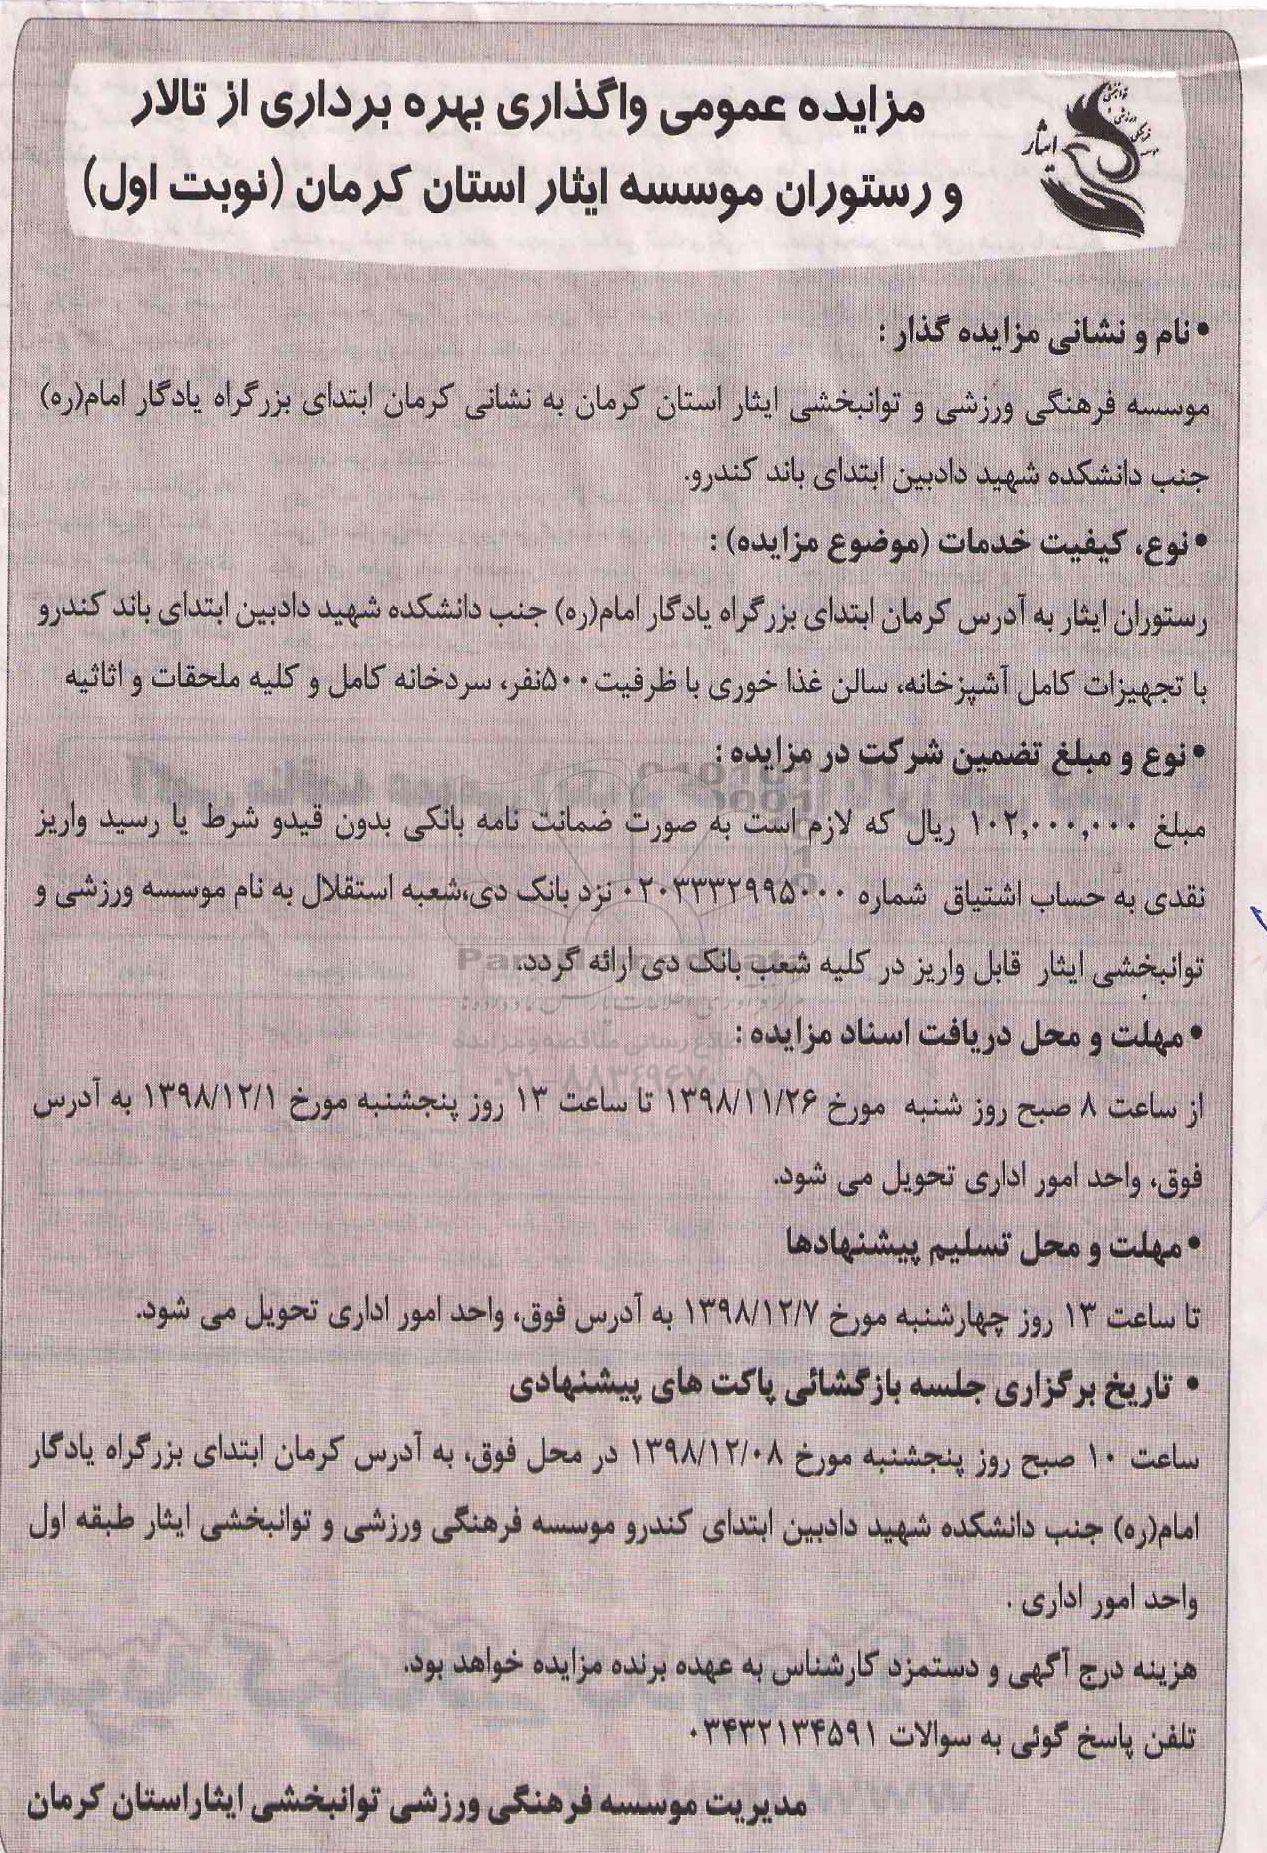 مزایده عمومی واگذاری بهره برداری از تالار
و رستوران موسسه ایثار استان کرمان (نوبت اول)
ایثار
• نام و نشانی مزایده گذار :
موسسه فرهنگی ورزشی و توانبخشی ایثار استان کرمان به نشانی کرمان ابتدای بزرگراه یادگار امام(ره)
جنب دانشکده شهید دادبین ابتدای باند کندرو.
• نوع، کیفیت خدمات (موضوع مزایده) :
رستوران ایثار به آدرس کرمان ابتدای بزرگراه یادگار امام(ره) جنب دانشکده شهید دادبین ابتدای باند کندرو
با تجهیزات کامل آشپزخانه، سالن غذا خوری با ظرفیت۵۰۰نفر، سردخانه کامل و کلیه ملحقات و اثاثیه
• نوع و مبلغ تضمین شرکت در مزایده :
مبلغ ۱۰۲,۰۰۰,۰۰۰ ریال که لازم است به صورت ضمانت نامه بانکی بدون قیدو شرط یا رسید واریز
نقدی به حساب اشتیاق شماره ۰۲۰۳۳۳۲۹۹۵۰۰۰ نزد بانک دی،شعبه استقلال به نام موسسه ورزشی و
توانبخشی ایثار قابل واریز در کلیه شعب بانک دی ارائه گردد.
• مهلت و محل دریافت اسناد مزایده :
از ساعت ۸ صبح روز شنبه مورخ ۱۳۹۸/۱۱/۲۶ تا ساعت ۱۳ روز پنجشنبه مورخ ۱۳۹۸/۱۲/۱ به آدرس
فوق، واحد امور اداری تحویل می شود.
• مهلت و محل تسلیم پیشنهادها
تا ساعت ۱۳ روز چهارشنبه مورخ ۱۳۹۸/۱۲/۷ به آدرس فوق، واحد امور اداری تحویل می شود.
• تاریخ برگزاری جلسه بازگشائی پاکت های پیشنهادی
ساعت ۱۰ صبح روز پنجشنبه مورخ ۱۳۹۸/۱۲/۰۸ در محل فوق، به آدرس کرمان ابتدای بزرگراه یادگار
امام(ره) جنب دانشکده شهید دادبین ابتدای کندرو موسسه فرهنگی ورزشی و توانبخشی ایثار طبقه اول
واحد امور اداری .
هزینه درج آگهی و دستمزد کارشناس به عهده برنده مزایده خواهد بود.
تلفن پاسخ گوئی به سوالات ۰۳۴۳۲۱۳۴۵۹۱
مدیریت موسسه فرهنگی ورزشی توانبخشی ایثاراستان کرمان